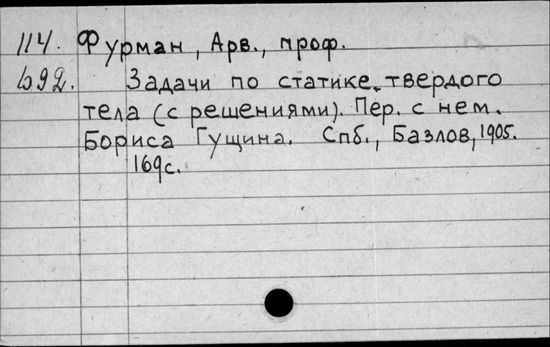 114. Фурман, Арв., проф.
692. Задачи по статике твердого
тела (с решениями). Пер. с нем.
Бориса Гущина. Спб., Базлов, 1905.
169с.